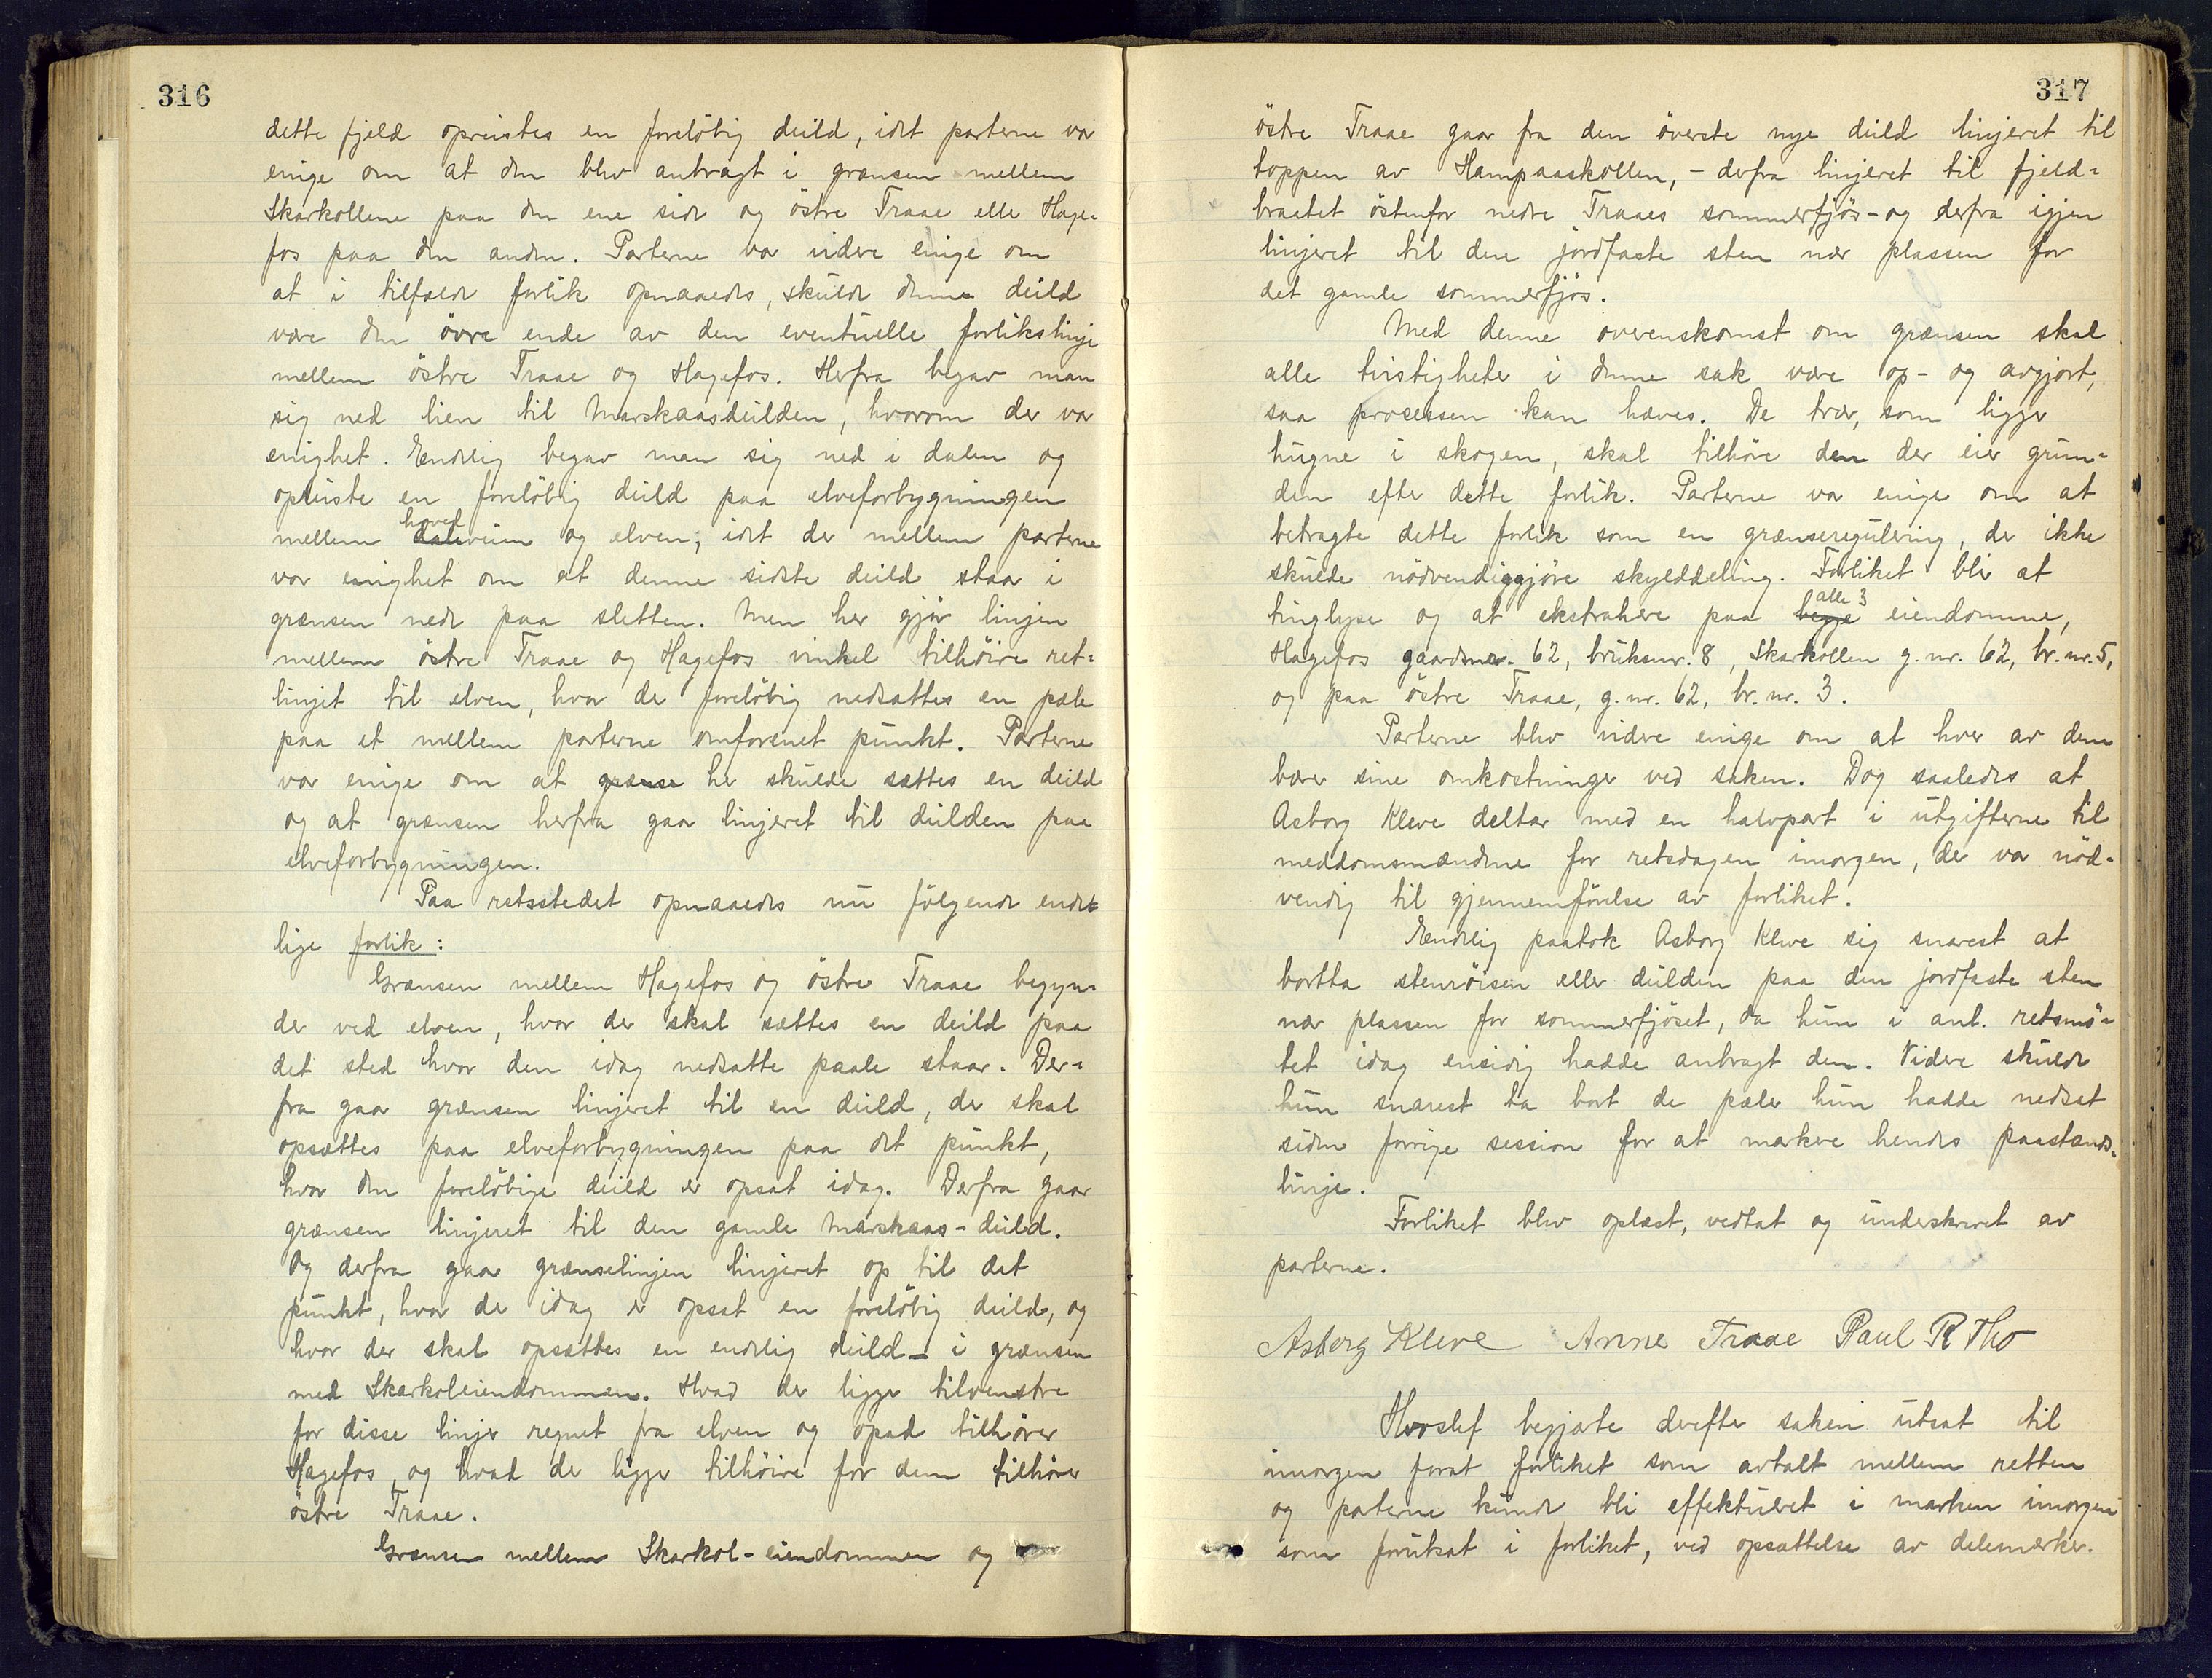 316
dette fjeld opreistes en foreløbig deild, idet parterne var
enige om at den blev anbragt i grænsen mellem
Skarkollene paa den ene side og østre Traae eller Hage-
fos paa den anden. Parterne var videre enige om
at i tilfælde forlik opnaaedes, skulde denne deild
være den øvre ende av den eventuelle forlikslinje
mellem østre Traae og Hagefos. Herfra begav man
sig ned lien til Marskaasdeilden, hvorom der var
enighet. Endelig begav man sig ned i dalen og
opreiste en foreløbig deild paa elveforbygningen
mellem hovedveien og elven, idet der mellem parterne
var enighet om at denne sidste deild staar i
grænsen nede paa sletten. Men her gjør linjen
mellem østre Traae og Hagefos vinkel tilhøire ret-
linjet til elven, hvor der foreløbig nedsattes en pæle
paa et mellem parterne omforenet punkt. Parterne
var enige om at grænse her skulde sættes en deild
og at grænsen herfra gaar linjeret til deilden paa
elveforbygningen.
Paa retsstedet opnaaedes nu følgende ende-
lige forlik:
Grænsen mellem Hagefos og østre Traae begyn-
der ved elven, hvor der skal sættes en deild paa
det sted hvor den idag nedsatte paale staar. Der-
fra gaar grænsen linjeret til en deild, der skal
opsættes paa elveforbygningen paa det punkt,
hvor den foreløbige deild er opsat idag. Derfra gaar
grænsen linjeret til den gamle Marskaas-deild.
Og derfra gaar grænselinjen linjeret op til det
punkt, hvor der idag er opsat en foreløbig deild, og
hvor der skal opsættes en endelig deild – i grænsen
med Skarkoleiendommen. Hvad der ligger tilvenstre
for disse linjer regnet fra elven og opad tilhører
Hagefos, og hvad der ligger tilhøire for dem tilhører
østre Traae.
Grænsen mellem Skarkol-eiendommen og
317
østre Traae gaar fra den øverste nye deild linjeret til
toppen av Hampaaskollen, – derfra linjeret til fjeld-
braatet østenfor nedre Traaes sommerfjøs – og derfra igjen
linjeret til den jordfaste sten nær plassen for
det gamle sommerfjøs.
Med denne overenskomst om grænsen skal
alle tvistigheter i denne sak være op- og avgjort,
saa processen kan hæves. De trær, som ligger
hugne i skogen, skal tilhøre den der eier grun-
den efter dette forlik. Parterne var enige om at
betragte dette forlik som en grænseregulering, der ikke
skulde nødvendiggjøre skylddeling. Forliket blir at
tinglyse og at ekstrahere paa begge alle 3 eiendomme,
Hagefos gaardsnr. 62, bruksnr. 8, Skarkollen g.nr. 62, br.nr. 5,
og paa østre Traae, g.nr. 62, br.nr. 3.
Parterne blev videre enige om at hver av dem
bærer sine omkostninger ved saken. Dog saaledes at
Asborg Kleve deltar med en halvpart i utgifterne til
meddomsmændene for retsdagen imorgen, der var nød-
vendig til gjennemførelse av forliket.
Endelig paatok Asborg Kleve sig snarest at
bortta stenrøisen eller deilden paa den jordfaste sten
nær plassen for sommerfjøset, da hun i anl. retsmø-
tet idag ensidig hadde anbragt den. Videre skulde
hun snarest ta bort de pæler hun hadde nedsat
siden forrige session for at markere hendes paastands-
linje.
Forliket blev oplæst, vedtat og underskrevet av
parterne.
Asborg Kleve Anne Traae Paul R Tho
Hvoslef begjærte derefter saken utsat til
imorgen forat forliket som avtalt mellem retten
og parterne kunde bli effektueret i marken imorgen
som forutsat i forliket, ved opsættelse av delesmærker.